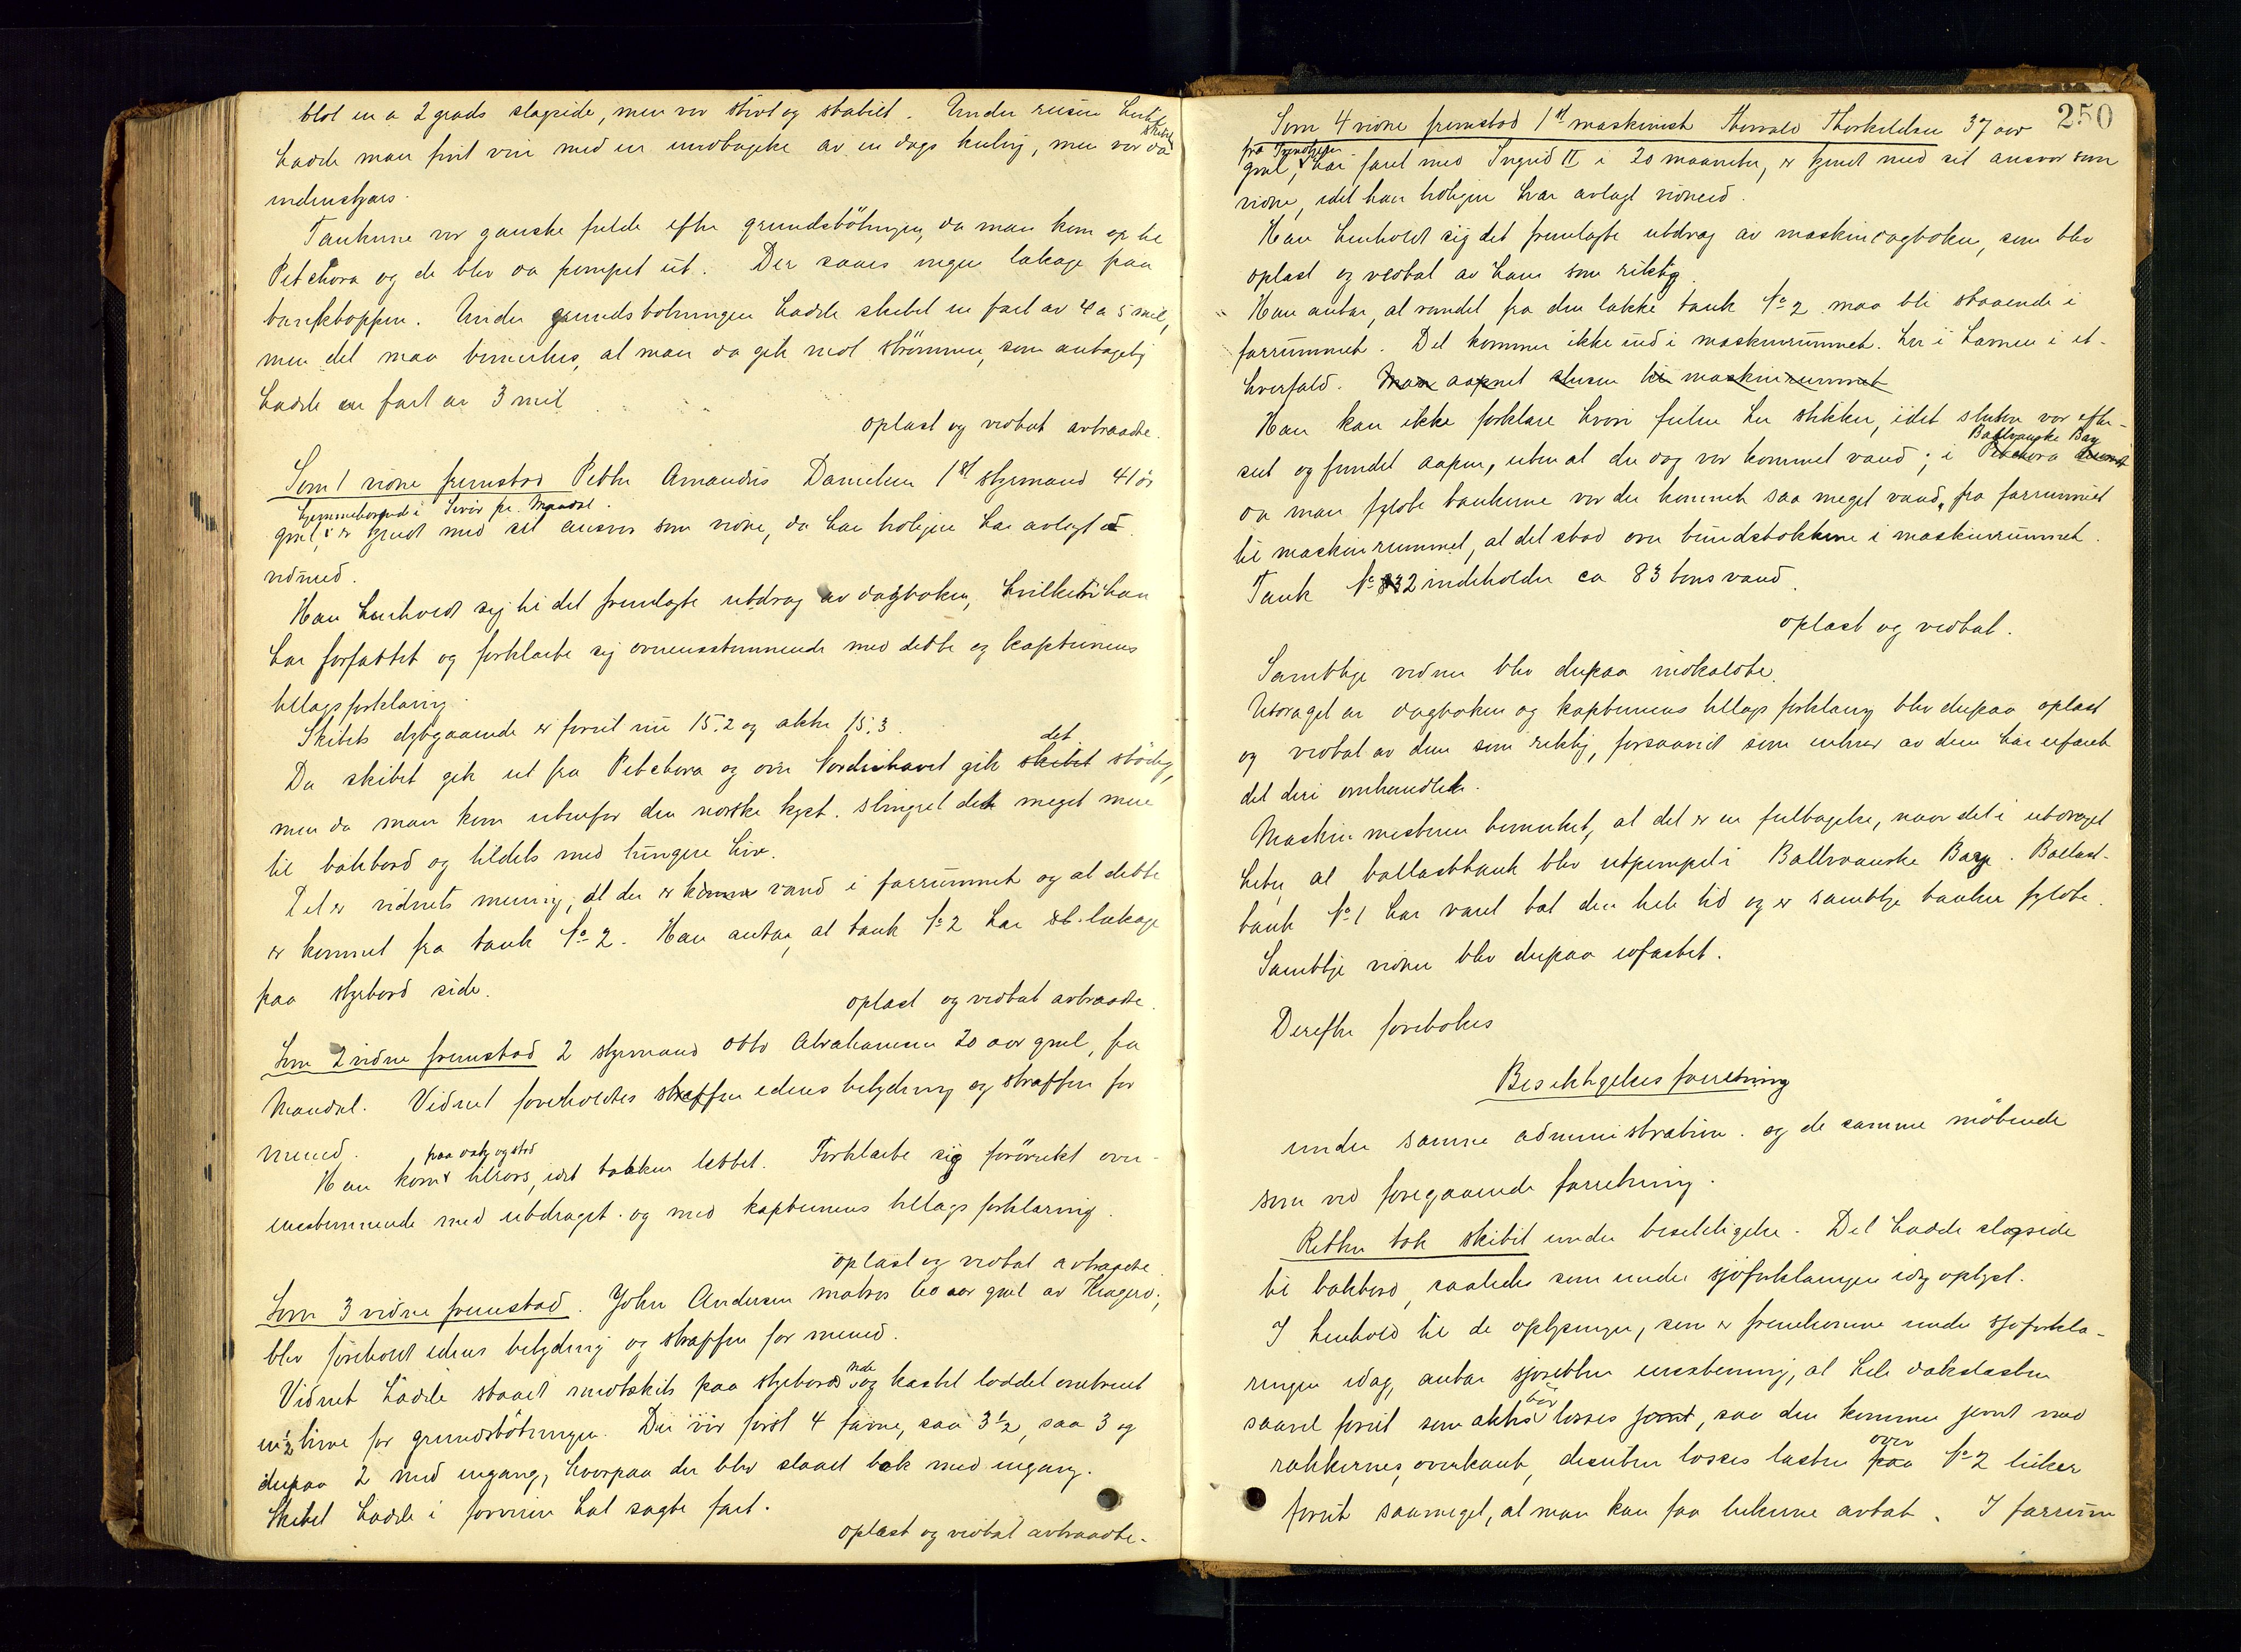 blot en a 2 grads slagside, men var stivt og stabilt. Under reisen hertil
hadde man fint veir med en undtagelse av en dags kuling, men var da skibet
indenskjærs.
Tankene var ganske fulde efter grundstötningen, da man kom op til
Petchora og de blev da pumpet ut. Der saaes ingen lækage paa
tanktoppen. Under grundstötningen hadde skibet en fart av 4 a 5 mil,
men det maa bemerkes, at man da gik mot strömmen, som antagelig
hadde en fart av 3 mil
oplæst og vedtat avtraadte.
Som 1 vidne fremstod Petter Amandus Danielsen 1st styrmand 41 år
hjemmehørende i Sivör pr. Mandal.
gml, er kjendt med sit ansvar som vidne, da han tidligere har avlagt
vidneed.
Han henholdt sig til det fremlagte utdrag av dagboken, hvilket han
har forfattet og forklarte sig overensstemmende med dette og kapteinens
tillægsforklaring.
Skibets dybgaaende er forut nu 15.2 og akter 15.3.
det
Da skibet gik ut fra Petchora og over Nordishavet gik skibet stödig,
men da man kom utenfor den norske kyst. slingret det meget mere
til bakbord og tildels med tungere hiv.
Det er vidnets mening, at der er kommet vand i farrummet og at dette
er kommet fra tank No 2. Han antar, at tank No 2 har lækage
paa styrbord side.
oplæst og vedtat avtraadte.
Som 2 vidne fremstod 2 styrmand Otto Abrahamsen 20 aar gml, fra
Mandal. Vidnet foreholdtes straffen edens betydning og straffen for
mened.
paa vakt og stod
Han kom tilrors, idet tåkken lettet. Forklarte sig forövrikt over-
ensstemmende med utdraget og med kapteinens tillægsforklaring.
oplæst og vedtat avtraadte.
Som 3 vidne fremstod. John Andersen matros 60 aar gml av Kragerö,
blev foreholdt edens betydning og straffen for mened.
Vidnet hadde staaet midtskibs paa styrbord side og kastet loddet omtrent
en ½ time før grundstötningen. Der var först 4 favne, saa 3½, saa 3 og
derpaa 2 med engang, hvorpaa der blev slaaet bak med engang.
Skibet hadde i forveien hat sagte fart.
oplæst og vedtat avtraadte.
250
Som 4 vidne fremstod 1st maskinist Thorvald Thorkildsen 37 aar
gml, har faret med Ingrid II i 20 maaneter, er kjendt med sit ansvar som
vidne, idet han tidligere har avlagt vidneed.
Han henholdt sig det fremlagte utdrag av maskindagboken, som blev
oplæst og vedtat av ham som riktig.
Han antar, at vandet fra den lække tank No 2 maa bli staaende i
farrummet. Det kommer ikke ind i maskinrummet. her i havnen i et-
hvertfald. Man aapnet slusen til maskinrummet
Han kan ikke forklare hvori feilen her stikker, idet slusen var efter-
set og fundet aapen, uten at der dog var kommet vand; i Petchora
Baltvanske Bay
da man fyldte tankerne var der kommet saa meget vand, fra farrummet
til maskinrummet, at det stod over bundstokkene i maskinrummet.
Tank No 2 indeholder ca 83 tons vand.
oplæst og vedtat.
Samtlige vidner blev derpaa indkaldte.
Utdraget av dagboken og kapteinens tillægsforklaring blev derpaa oplæst
og vedtat av dem som riktig, forsaavidt som enhver av dem har erfaret
det deri omhandlede.
Maskinmesteren bemerket, at det er en feiltagelse, naar det i utdraget
heter, at ballasttank blev utpumpet i Baltvanske Bay. Ballast-
tank No 1 har været tæt den hele tid og er samtlige tanker fyldte.
Samtlige vidner blev derpaa edfæstet.
Derefter foretokes
Besiktigelsesforretning
under samme administration. og de samme mötende
som ved foregaaende forretning.
Retten tok skibet under besiktigelse. Det hadde slagside
til bakbord, saaledes som under sjöforklaringen idag oplyst.
I henhold til de oplysninger, som er fremkomne under sjöforkla-
ringen idag, antar sjöretten enstemmig, at hele dækslasten
saavel forut som akter bör losses jevnt, saa den kommer jevnt med
rækkernes overkant, desuten losses lasten paa over No 2 luker
forut saameget, at man kan faa lukene avtat. I farrum